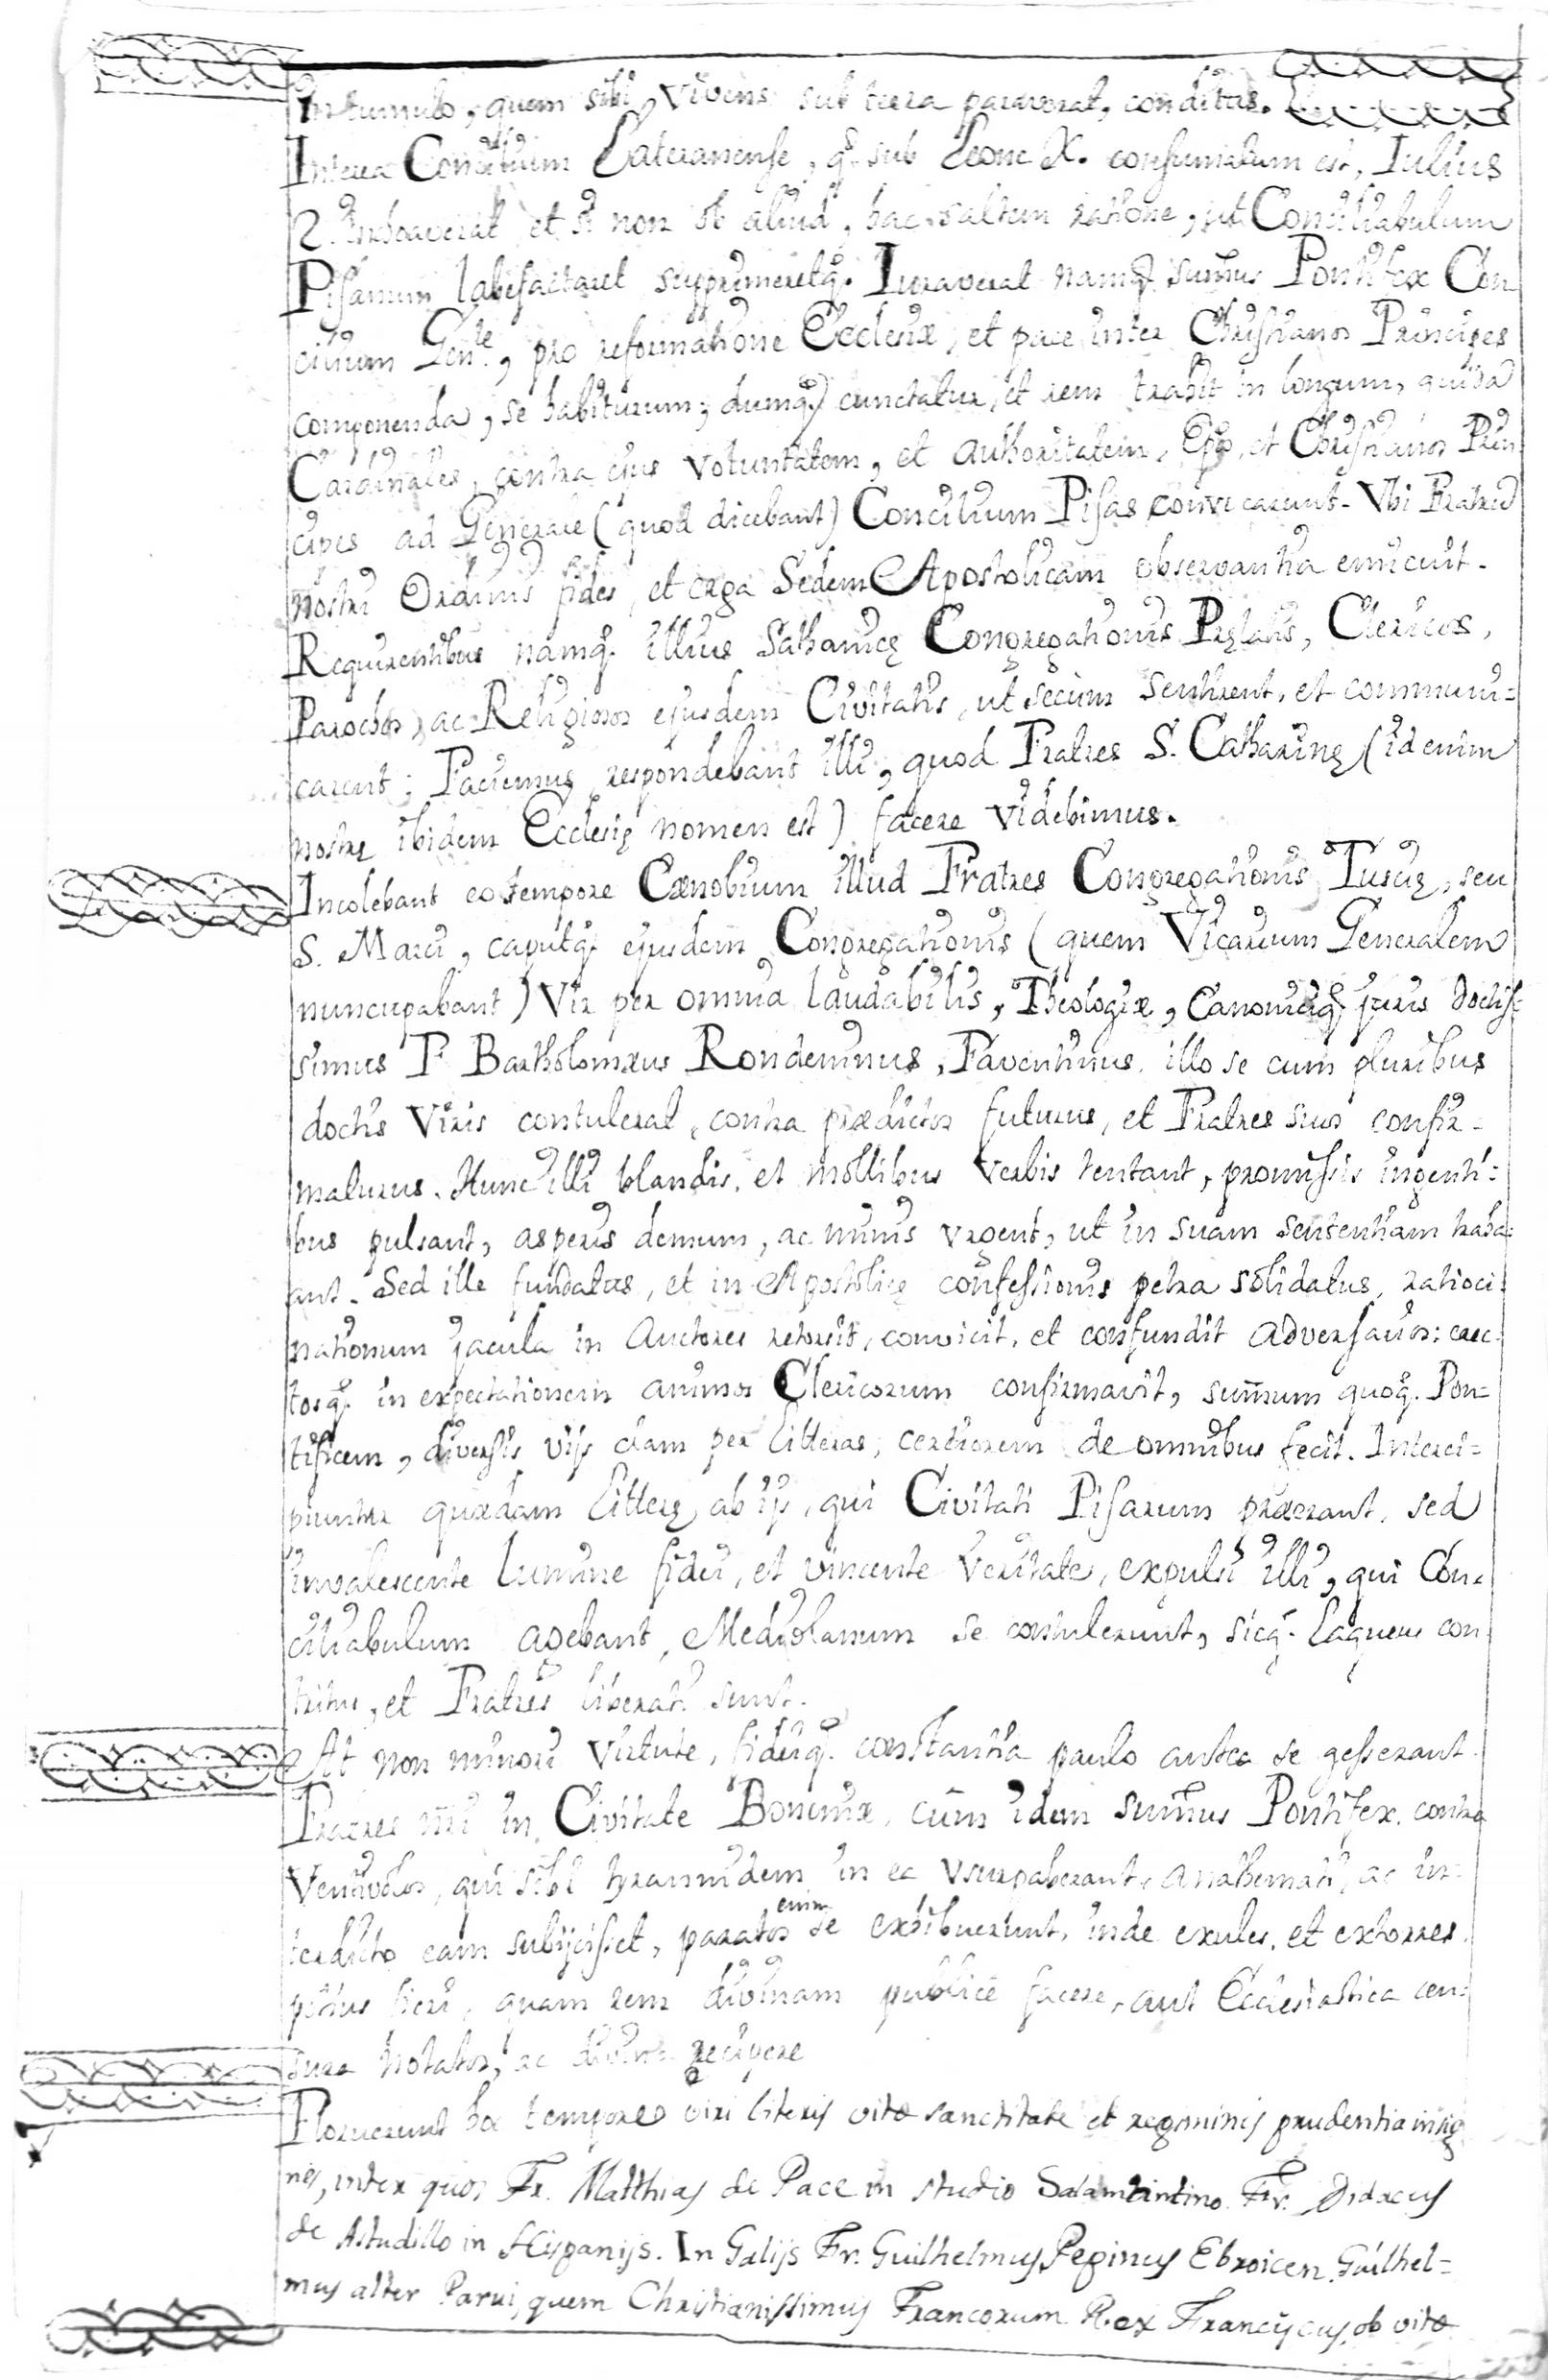 In tumulo, quem sibi vivens sub terra paraverat, conditus.
Interea Concilium Lateranense, q. sub Leone X. consumatum est, Iulius
2. inchoaverat et si non ob aliud, hac saltem ratione, ut Conciliabulum
Pisanum labefactaret supprimeretq. Iuraverat namq. sum̄us Pontifex Con
cilium Gen.le, pro reformatione Ecclesiæ, et pace inter Christianos Principes
componenda, se habiturum; dumq. cunctatur, et rem trahit in longum, quida
Cardinales, contra ejus voluntatem, et authoritatem, Ep̄os, et Christianos Prin
cipes ad Generale (quod dicebant) Concilium Pisas convocarunt. Vbi Fratrū
nostri Ordinis fides, et erga Sedem Apostolicam observantia emicuit.
Requirentibus namq. illius Sathanicę Congregationis Pręlatis, Clericos,
Parochos, ac Religiosos ejusdem Civitatis, ut secum sentirent, et communi=
carent; Faciemus, respondebant illi, quod Fratres S. Catharinę (id enim
nostrę ibidem Ecclesię nomen est) facere videbimus.
Incolebant eo tempore Cænobium illud Fratres Congregationis Tuscię, seu
S. Marci, caputq. ejusdem Congregationis (quem Vicarium Generalem
nuncupabant) Vir per omnia laudabilis, Theologiæ, Canoniciq. juris doctis=
simus F. Bartholomæus Rondeninus, Faventinus, illo se cum pluribus
doctis Viris contulerat, contra prædictos futurus, et Fratres suos confir=
maturus. Hunc illi blandis, et mollibus verbis tentant, promissis ingenti=
bus pulsant, asperis demum, ac minis vrgent, ut in suam sententiam traha=
ant. Sed ille fundatus, et in Apostolicę confessionis petra solidatus, ratioci=
nationum jacula in Auctores retorsit, convicit, et confundit adversarios; erec=
tosq. in expectationem animos Clericorum confirmavit, sum̄um quoq. Pon=
tificem, diversis vijs clam per litteras, certiorem de omnibus fecit. Interci=
piuntur quædam litterę ab ijs, qui Civitati Pisarum præerant, sed
invalescente lumine fidei, et vincente veritate, expulsi illi, qui Con=
ciliabulum agebant, Mediolanum se contulerunt, sicq. laqueus con
tritus, et Fratres liberati sunt.
At non minori virtute, fideiq. constantia paulo antea se gesserant
Fratres nr̄i in Civitate Bononiæ, cum idem sum̄us Pontifex contra
Ventivolos, qui sibi tyrannidem in ea vsurpaberant, anathemati, ac in=
terdicto eam subijcisset, paratos enim se exhibuerunt, inde exules, et extorres
potius fieri, quam rem divinam publice facere, aut Ecclesiastica cen=
sura notatos, ac divina recipere
Floruerunt hoc tempore viri literis vitæ sanctitate et regiminis prudentia insig
nes, inter quos Fr. Matthias de Pace in studio Salamantino. Fr. Didacus
de Astudillo in Hispanijs. In Galijs Fr. Guilhelmus Pepinus Ebroicen. Guilhel=
mus alter Parui, quem Christianissimus Francorum Rex Franciscus, ob vitæ